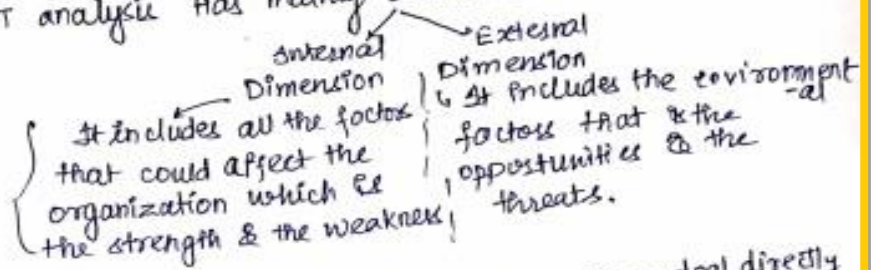 T analysis Has
Internal
Dimension
It includes all the factors
that could affect the
organization which is
the strength & the weakness
External
Dimension
It includes the environment
-al
factors that & the
opportunities & the
threats.
directly